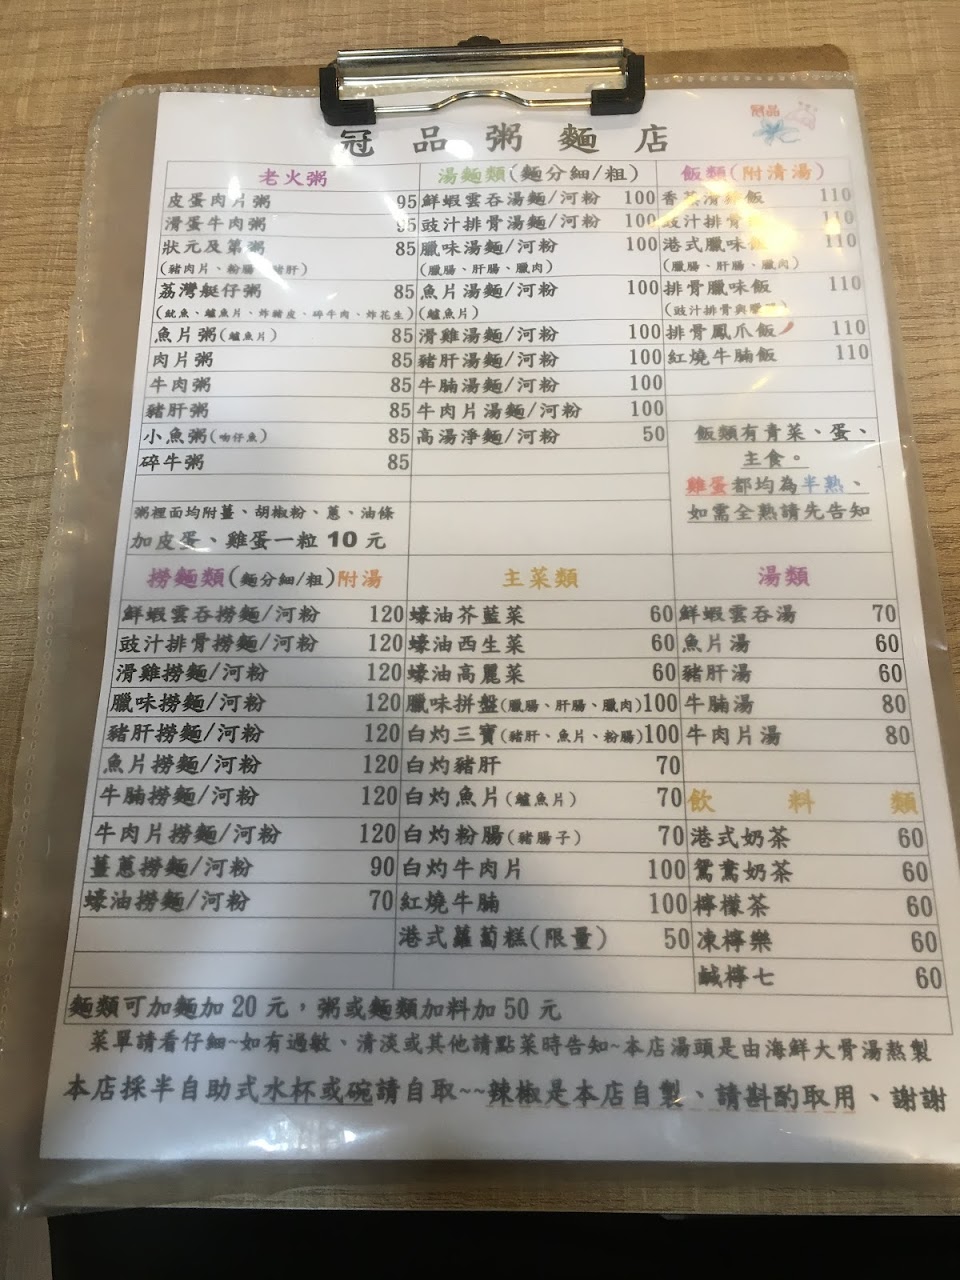 冠品
冠品粥麵店
老火粥
皮蛋肉片粥 95
滑蛋牛肉粥 95
狀元及第粥 85
(豬肉片、粉腸、豬肝)
荔灣艇仔粥 85
(魷魚、鱸魚片、炸豬皮、碎牛肉、炸花生)
魚片粥(鱸魚片) 85
肉片粥 85
牛肉粥 85
豬肝粥 85
小魚粥(吻仔魚) 85
碎牛粥 85
粥裡面均附薑、胡椒粉、蔥、油條
加皮蛋、雞蛋一粒 10 元
湯麵類(麵分細/粗)
鮮蝦雲吞湯麵/河粉 100
豉汁排骨湯麵/河粉 100
臘味湯麵/河粉 100
(臘腸、肝腸、臘肉)
魚片湯麵/河粉 100
(鱸魚片)
滑雞湯麵/河粉 100
豬肝湯麵/河粉 100
牛腩湯麵/河粉 100
牛肉片湯麵/河粉 100
高湯淨麵/河粉 50
飯類(附清湯)
香菇滑雞飯 110
豉汁排骨 110
港式臘味飯 110
(臘腸、肝腸、臘肉)
排骨臘味飯 110
(豉汁排骨與臘腸)
排骨鳳爪飯 110
紅燒牛腩飯 110
飯類有青菜、蛋、
主食。
雞蛋都均為半熟、
如需全熟請先告知
撈麵類(麵分細/粗)附湯
鮮蝦雲吞撈麵/河粉 120
豉汁排骨撈麵/河粉 120
滑雞撈麵/河粉 120
臘味撈麵/河粉 120
豬肝撈麵/河粉 120
魚片撈麵/河粉 120
牛腩撈麵/河粉 120
牛肉片撈麵/河粉 120
薑蔥撈麵/河粉 90
蠔油撈麵/河粉 70
主菜類
蠔油芥藍菜 60
蠔油西生菜 60
蠔油高麗菜 60
臘味拼盤(臘腸、肝腸、臘肉) 100
白灼三寶(豬肝、魚片、粉腸) 100
白灼豬肝 70
白灼魚片(鱸魚片) 70
白灼粉腸(豬腸子) 70
白灼牛肉片 100
紅燒牛腩 100
港式蘿蔔糕(限量) 50
湯類
鮮蝦雲吞湯 70
魚片湯 60
豬肝湯 60
牛腩湯 80
牛肉片湯 80
飲料類
港式奶茶 60
鴛鴦奶茶 60
檸檬茶 60
凍檸樂 60
鹹檸七 60
麵類可加麵加 20 元，粥或麵類加料加 50 元
菜單請看仔細~如有過敏、清淡或其他請點菜時告知~本店湯頭是由海鮮大骨湯熬製
本店採半自助式水杯或碗請自取~~辣椒是本店自製、請斟酌取用、謝謝